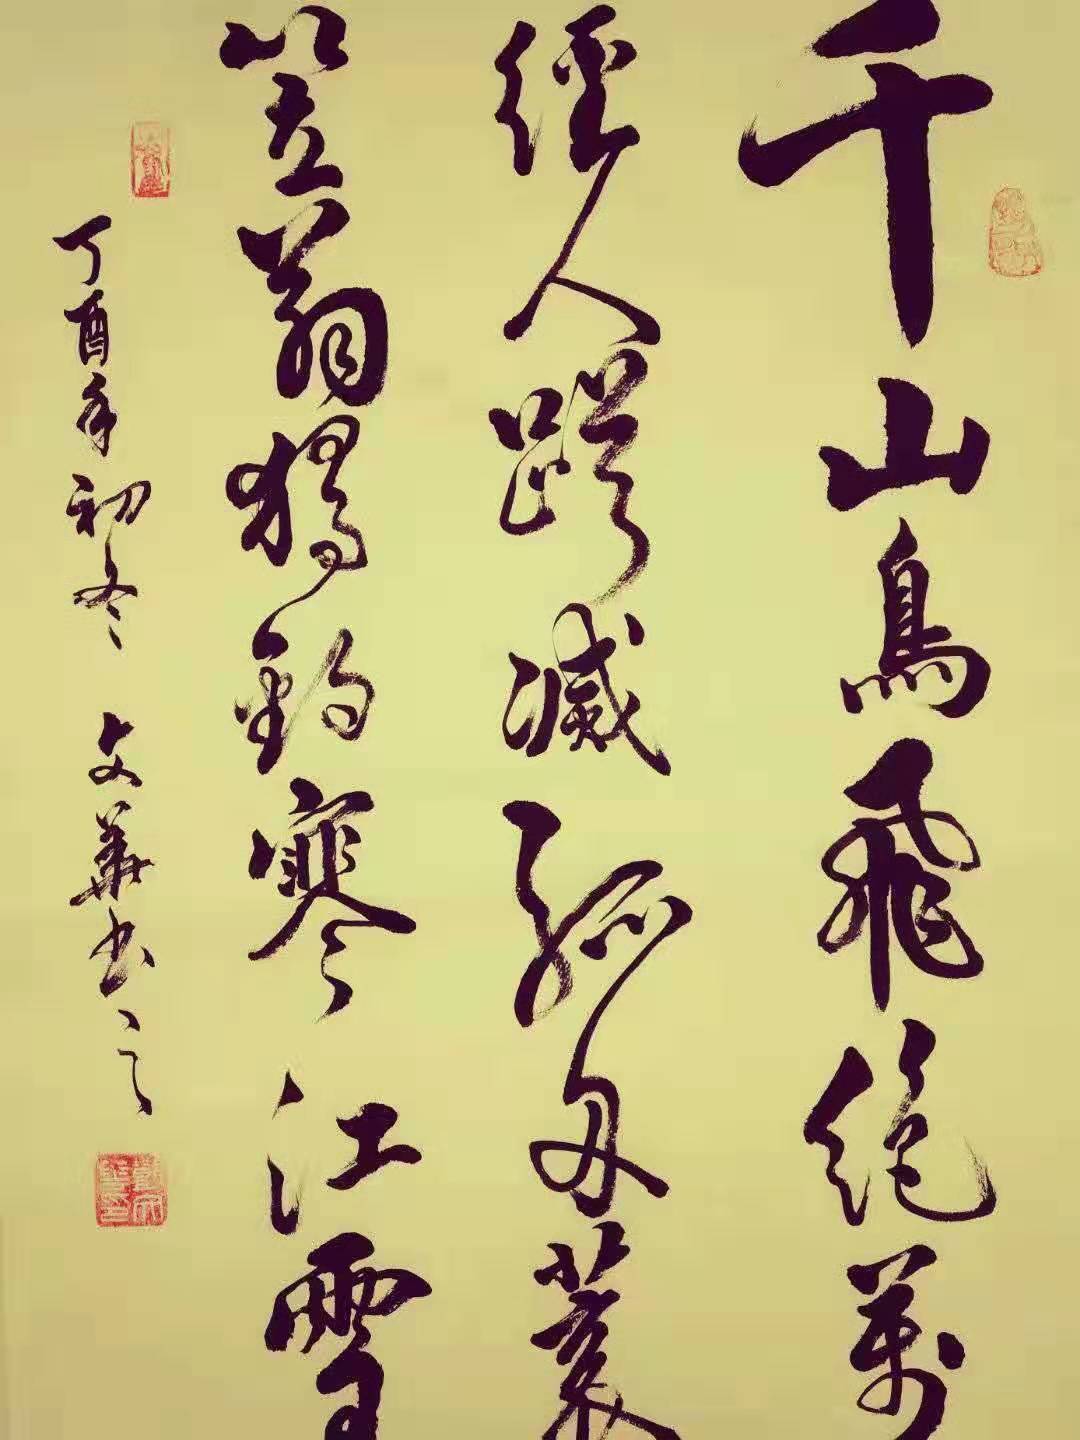 千山鳥飛絕萬
徑人蹤滅孤舟蓑
笠翁獨釣寒江雪
丁酉年初冬 文華书之